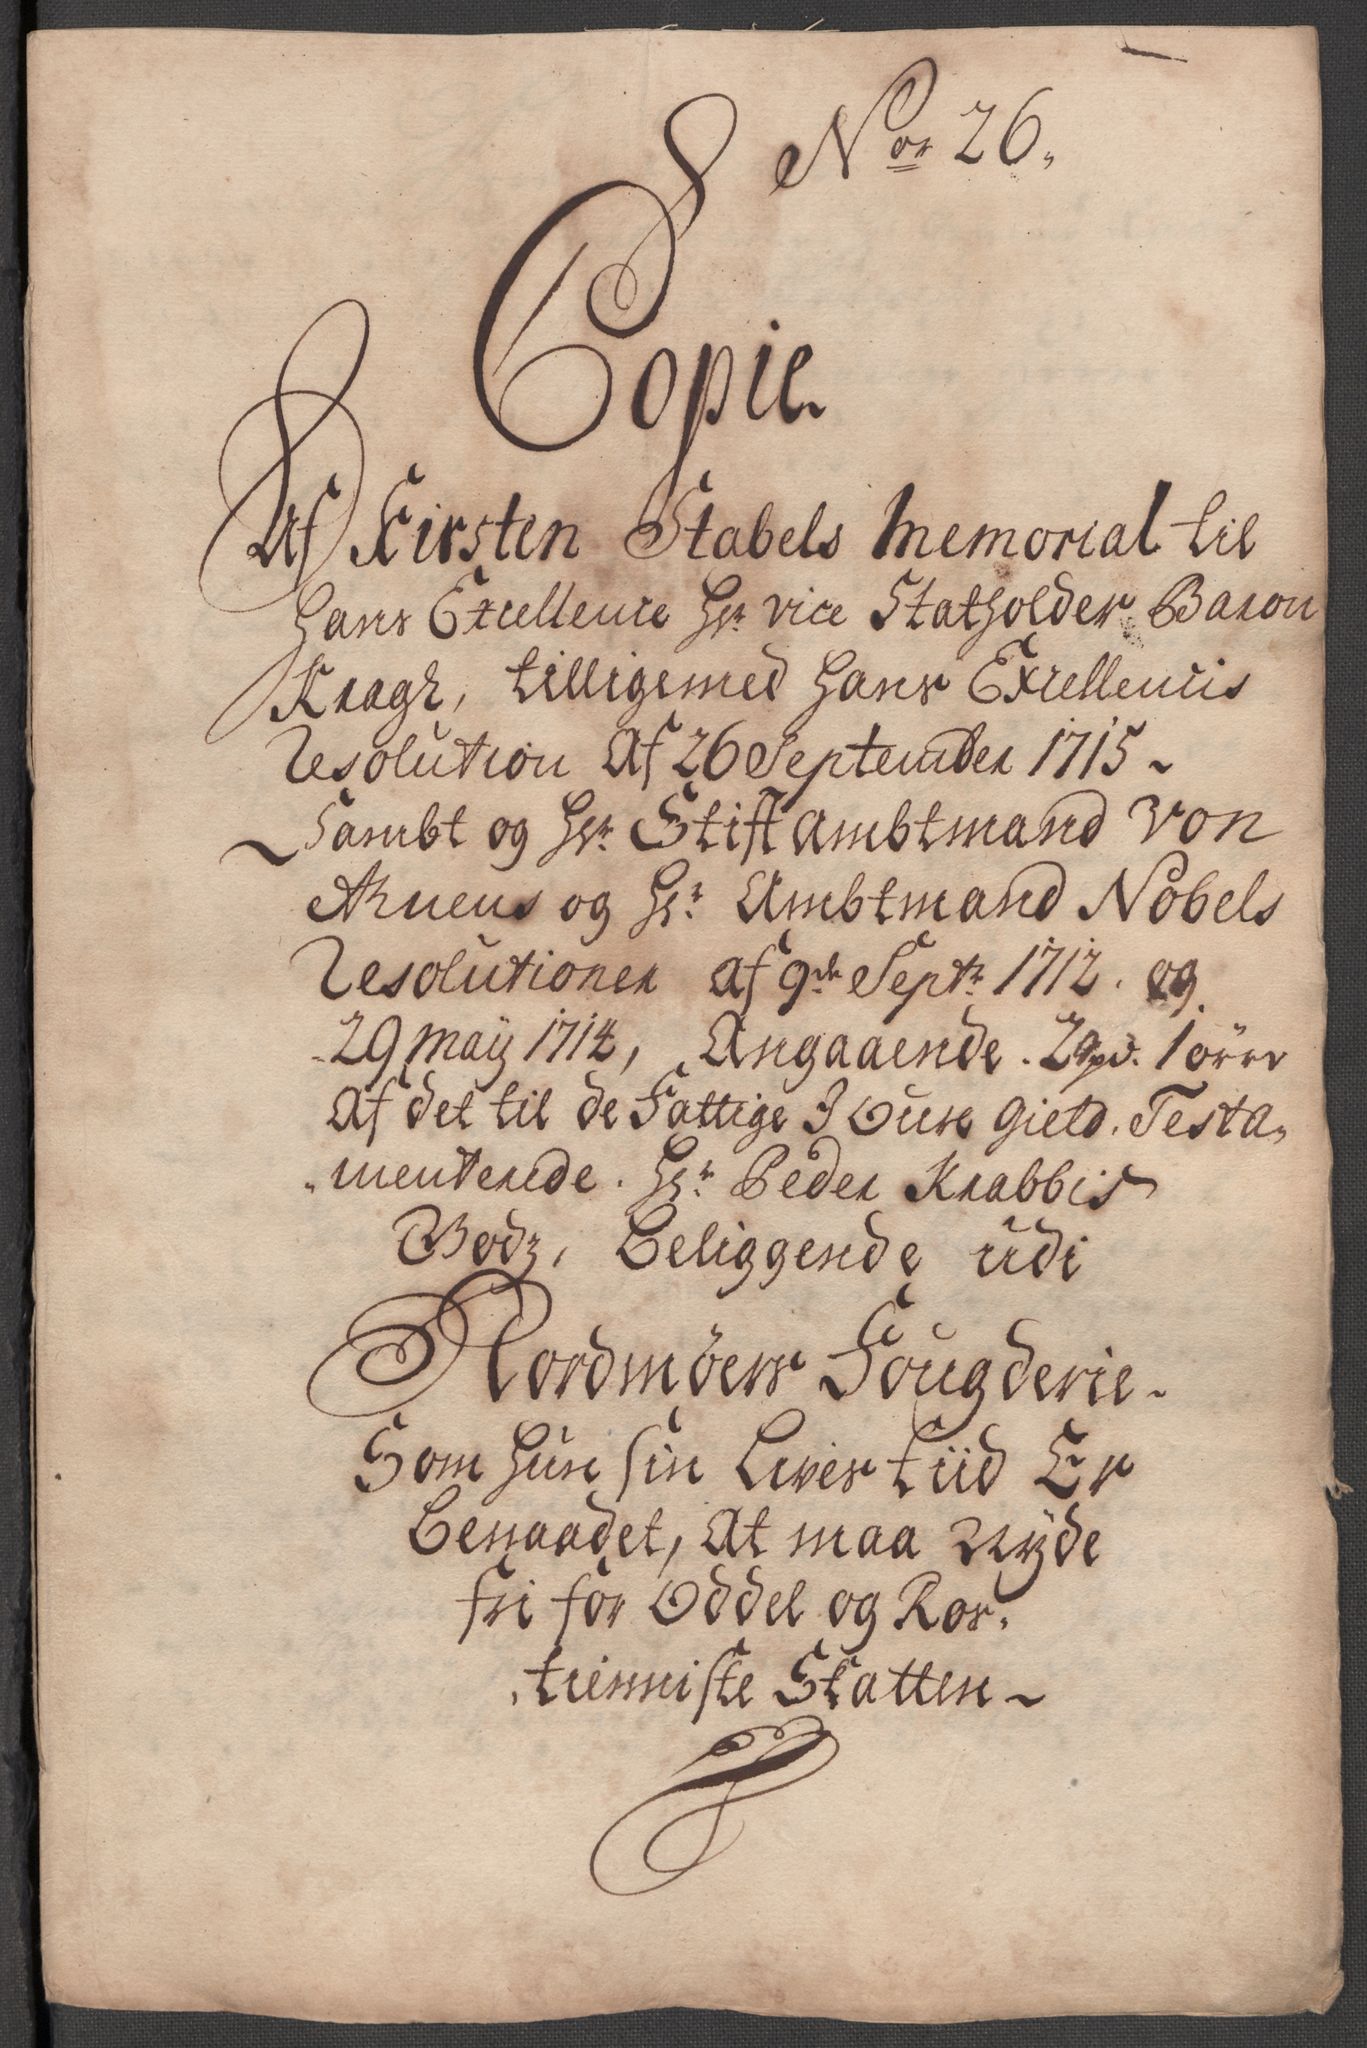 Nor 26.
Copie
Af Kirsten Stabels Memorial til
Hans Excellence Hr: vice Statholder Baron
Kragh, tilligemed Hans Excellencis
Resolution Af 26 September 1715
Sambt og Hr: Stiftambtmand Von
Ahnens og Hr: Ambtmand Nobels
Resolutioner af 9de Septr: 1712. og
29 Maÿ 1714, Angaaende. 1 öre
Af det til de Fattige I Ouse gield. Testa-
menterede. Hr: Peder Krabbis
Godz, beliggende udi
Nordmöers Fougderie
Som hun sin Lives tiid Er
benaadet, At maa Nÿde
fri for Oddel og Ros-
tienniste Skatten